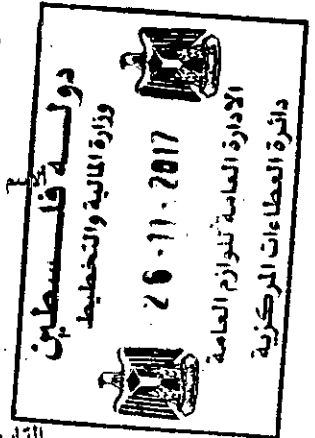 دولة فلسطين
وزارة المالية والتخطيط
26-11-2017
الادارة العامة للوازم العامة
دائرة العطاءات المركزية